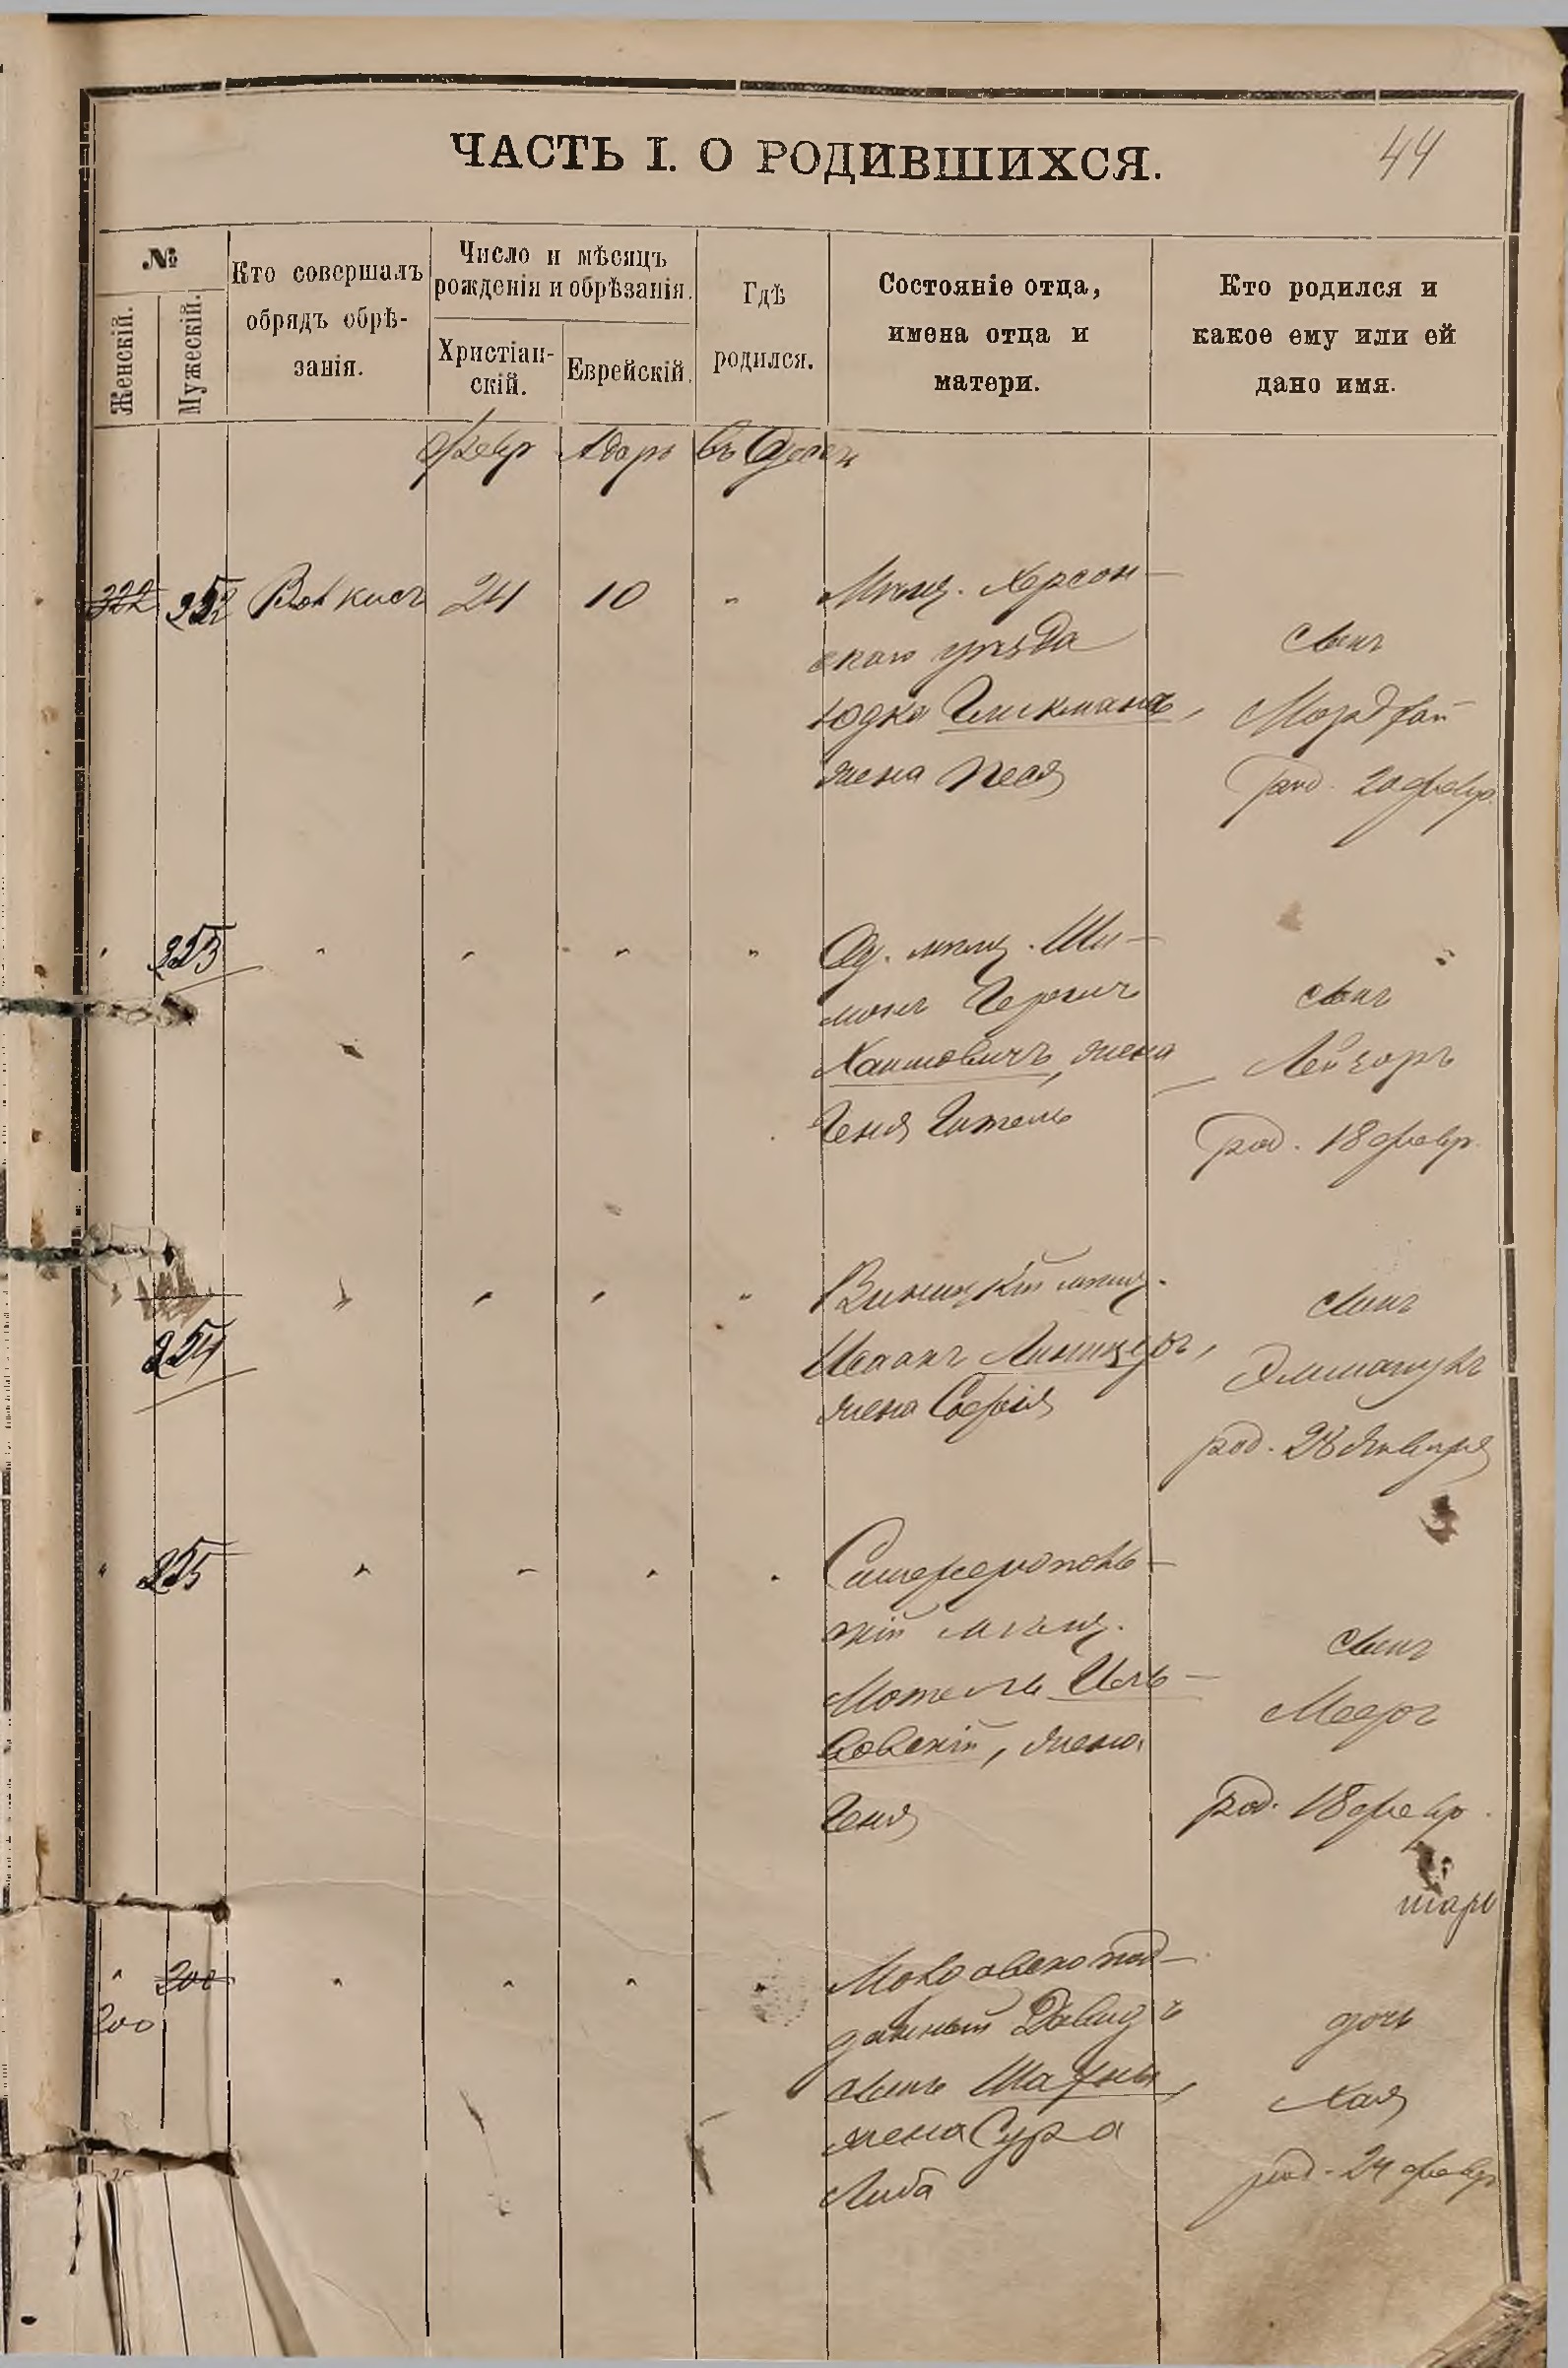 ЧАСТЬ I. О РОДИВШИХСЯ.
44
№
Женскій.
Мужескій.
Кто совершалъ
обрядъ обрѣ-
занія.
Число и мѣсяцъ
рожденія и обрѣзанія.
Христіан-
скій.
Еврейскій.
Гдѣ
родился.
Состояніе отца,
имена отца и
матери.
Кто родился и
какое ему или ей
дано имя.
Февр Адаръ въ Одессѣ
24 10 " Мѣщ. Херсон-
скаго уѣзда
Юдка Гликманъ,
жена Песя
сынъ
Мордхай
род. 20 февр.
253 " " " "
Од. мѣщ. Ши-
монъ Гершъ
Хаимовичъ, жена
Геня Гитель
сынъ
Лейзоръ
род. 18 февр.
254 " " " "
Виницкій мѣщ.
Исаакъ Линицеръ,
жена Софія
сынъ
Эммануилъ
род. 28 Января
255 " " " "
Симферополь-
скій мѣщ.
Мотель
жена
Геня
сынъ
Мееръ
род. 18 февр.
200
200
Молдавскопод-
данный Давидъ
жена Сура
Либа
дочь
Хая
род. 24 февр.